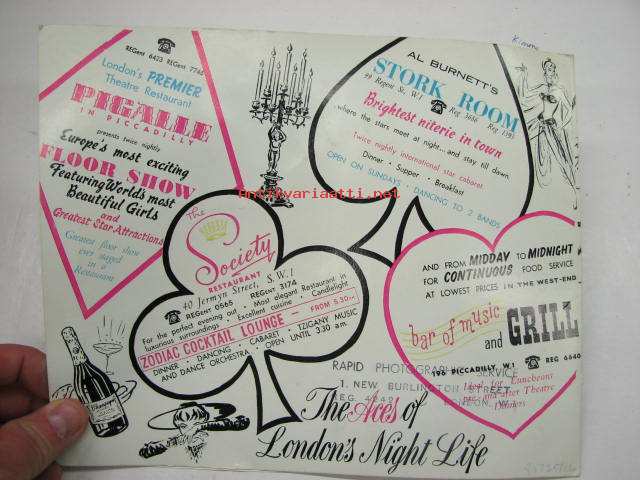 REGent 6423 REGent 7746
London's PREMIER
Theatre Restaurant
PIGALLE
IN PICCADILLY
presents twice nightly
Europe's most exciting
FLOOR SHOW
Featuring Worlds most
Beautiful Girls
and
Greatest Star Attractions
Greatest floor show
ever staged
in a
Restaurant
AL BURNETT'S
STORK ROOM
99 Regent St. W.1 Reg 3686 Reg 1395
Brightest niterie in town
where the stars meet at night...and stay till dawn
Twice nightly international star cabaret
Dinner · Supper · Breakfast
OPEN ON SUNDAYS · DANCING TO 2 BANDS
antikvariaatti.net
The
Society
RESTAURANT
40 Jermyn Street, S.W.1
REGent 0565 REGent 3174
For the perfect evening out · Most elegant Restaurant in
luxurious surroundings · Excellent cuisine · Candlelight
ZODIAC COCKTAIL LOUNGE — FROM 5.30 P.M.
DINNER · DANCING · CABARET · TZIGANY MUSIC
AND DANCE ORCHESTRA · OPEN UNTIL 3.30 am.
AND FROM MIDDAY TO MIDNIGHT
FOR CONTINUOUS FOOD SERVICE
AT LOWEST PRICES IN THE WEST-END
bar of music
and GRILL
196 PICCADILLY, W.1 REG 6640
Ideal for Luncheons
pre- and after Theatre
Dinners
RAPID PHOTOGRAPHIC SERVICE
1. NEW BURLINGTON STREET
REG. 4049 LONDON W.1
The Aces of
London's Night Life
Champagne